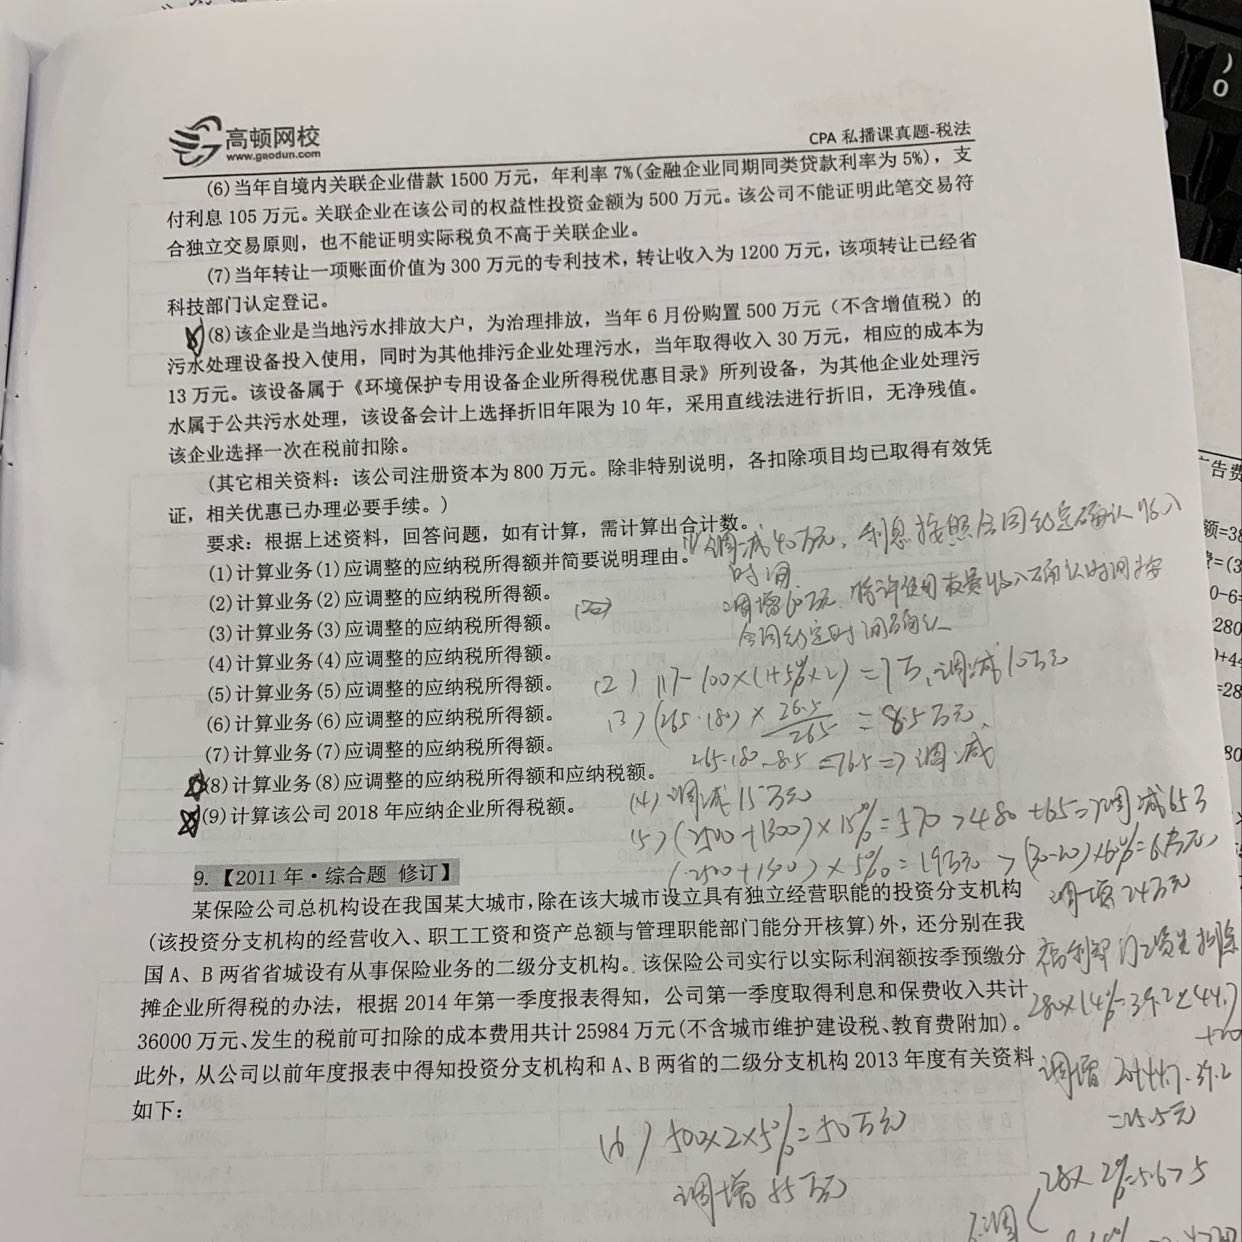 高顿网校
www.gaodun.com
CPA 私播课真题-税法
(6)当年自境内关联企业借款 1500 万元，年利率 7%(金融企业同期同类贷款利率为 5%)，支
付利息 105 万元。关联企业在该公司的权益性投资金额为 500 万元。该公司不能证明此笔交易符
合独立交易原则，也不能证明实际税负不高于关联企业。
(7)当年转让一项账面价值为 300 万元的专利技术，转让收入为 1200 万元，该项转让已经省
科技部门认定登记。
(8)该企业是当地污水排放大户，为治理排放，当年 6 月份购置 500 万元（不含增值税）的
污水处理设备投入使用，同时为其他排污企业处理污水，当年取得收入 30 万元，相应的成本为
13 万元。该设备属于《环境保护专用设备企业所得税优惠目录》所列设备，为其他企业处理污
水属于公共污水处理，该设备会计上选择折旧年限为 10 年，采用直线法进行折旧，无净残值。
该企业选择一次在税前扣除。
(其它相关资料：该公司注册资本为 800 万元。除非特别说明，各扣除项目均已取得有效凭
证，相关优惠已办理必要手续。)
要求：根据上述资料，回答问题，如有计算，需计算出合计数。
(1)计算业务(1)应调整的应纳税所得额并简要说明理由。
(2)计算业务(2)应调整的应纳税所得额。
(3)计算业务(3)应调整的应纳税所得额。
(4)计算业务(4)应调整的应纳税所得额。
(5)计算业务(5)应调整的应纳税所得额。
(6)计算业务(6)应调整的应纳税所得额。
(7)计算业务(7)应调整的应纳税所得额。
(8)计算业务(8)应调整的应纳税所得额和应纳税额。
(9)计算该公司 2018 年应纳企业所得税额。
调减40万元，利息按照合同约定确认收入
时间
调增60万元，特许使用权费收入确认时间按
合同约定时间确认
(2) 117-100×(1+5%×2)=7万，调减10万元
(3) (265-180)×26.5/265=8.5万元、
265-180-8.5=76.5=>调减
(4) 调减15万元
(5) (2500+1300)×15%=570>480+65=>调减65万
(2500+1300)×5‰=19万元>(30-20)×60%=6万元
调增24万元
福利部门工资先扣除
280×14%=39.2<44.7
+20
调增 20+44.7-39.2
=25.5元
(6) 500×2×5%=50万元
调增55万元
9.【2011 年·综合题 修订】
某保险公司总机构设在我国某大城市，除在该大城市设立具有独立经营职能的投资分支机构
(该投资分支机构的经营收入、职工工资和资产总额与管理职能部门能分开核算)外，还分别在我
国 A、B 两省省城设有从事保险业务的二级分支机构。该保险公司实行以实际利润额按季预缴分
摊企业所得税的办法，根据 2014 年第一季度报表得知，公司第一季度取得利息和保费收入共计
36000 万元、发生的税前可扣除的成本费用共计 25984 万元(不含城市维护建设税、教育费附加)。
此外，从公司以前年度报表中得知投资分支机构和 A、B 两省的二级分支机构 2013 年度有关资料
如下：